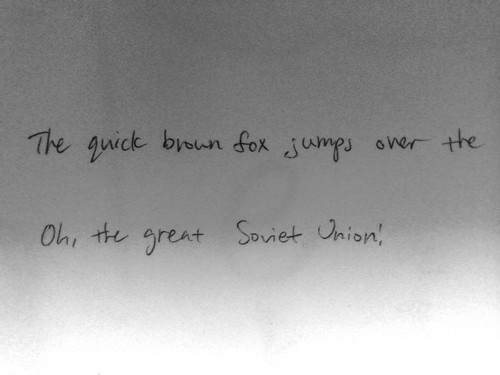 The quick brown fox jumps over the
Oh, the great Soviet Union!